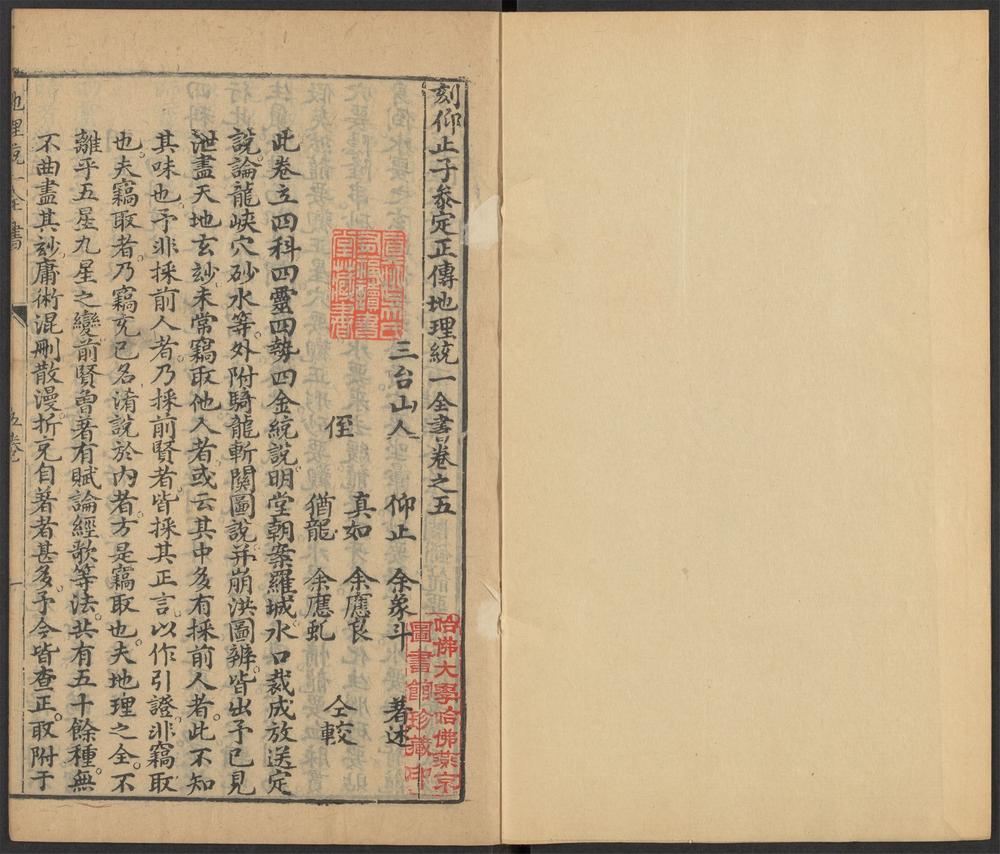 刻仰止子叅定正傳地理統一全書卷之五
三台山人 仰止 余象斗 著述
侄 真如 余應良
猶龍 余應虬 仝較
此卷立四科四靈四勢四金統說明堂朝案羅城水口裁成放送定
說論龍峽穴砂水等外附騎龍斬關圖說并崩洪圖辨皆出予已見
泄盡天地玄玅未常竊取他人者或云其中多有採前人者此不知
其味也予非採前人者乃採前賢者皆採其正言以作引證非竊取
也夫竊取者乃竊充已名淆說於內者方是竊取也夫地理之全不
離乎五星九星之變前賢魯著有賦論經歌等法共有五十餘種無
不曲盡其玅庸術混刪散漫折充自著者甚多予今皆查正取附于
地理統一全書
五卷
一
哈佛大學哈佛燕京
圖書館珍藏印